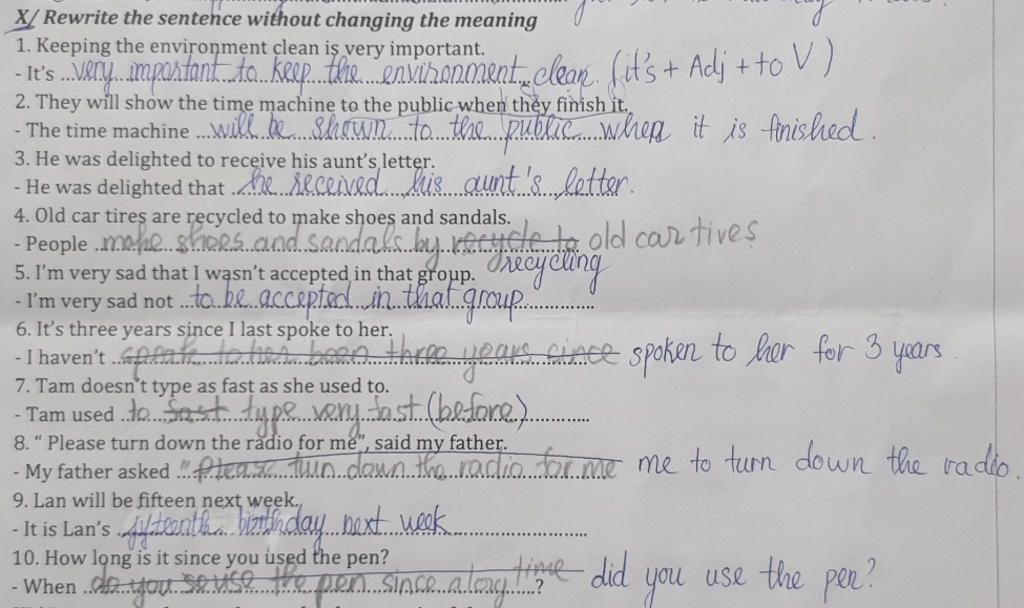 X/ Rewrite the sentence without changing the meaning
1. Keeping the environment clean is very important.
- It's very important to keep the environment clean. (it's + Adj + to V)
2. They will show the time machine to the public when they finish it.
- The time machine will be shown to the public when it is finished.
3. He was delighted to receive his aunt's letter.
- He was delighted that he received his aunt's letter.
4. Old car tires are recycled to make shoes and sandals.
- People make shoes and sandals by recycle to old car tives
recycling
5. I'm very sad that I wasn't accepted in that group.
- I'm very sad not to be accepted in that group.
6. It's three years since I last spoke to her.
- I haven't speak to her been three years since spoken to her for 3 years.
7. Tam doesn't type as fast as she used to.
- Tam used to fast type very fast (before)
8. “ Please turn down the radio for me”, said my father.
- My father asked "Please turn down the radio for me me to turn down the radio.
9. Lan will be fifteen next week.
- It is Lan's fifteenth birthday next week
10. How long is it since you used the pen?
- When do you use the pen since a long time ? did you use the pen?